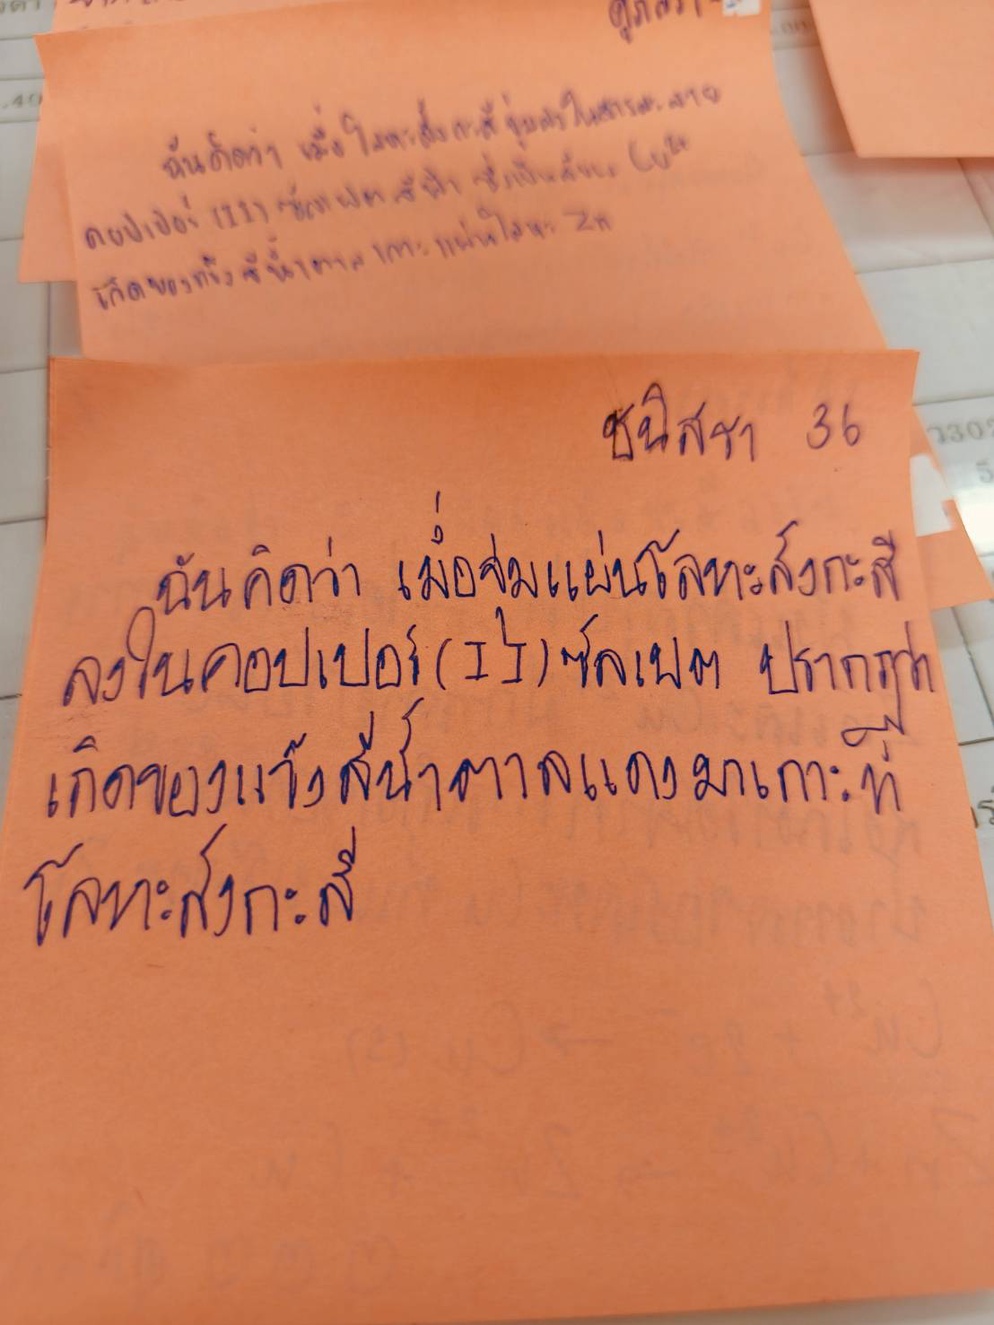 ฉันคิดว่า เมื่อโลหะสังกะสีจุ่มลงในสารละลาย
คอปเปอร์ (II) ซัลเฟต สีฟ้า ซึ่งเป็นสีของ Cu²⁺
เกิดของแข็งสีน้ำตาล เกาะแผ่นโลหะ Zn
ชนิสชา 36
ฉันคิดว่า เมื่อจุ่มแผ่นโลหะสังกะสี
ลงในคอปเปอร์(II)ซัลเฟต ปรากฏว่า
เกิดของแข็งสีน้ำตาลแดงมาเกาะที่
โลหะสังกะสี